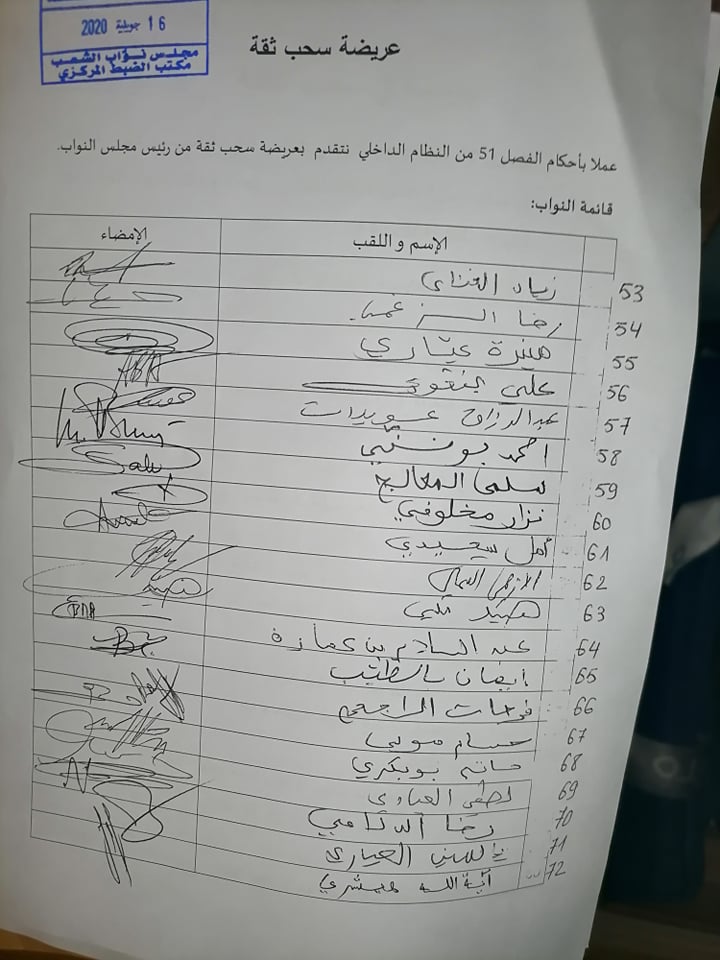 16 جويلية 2020
مجلس نواب الشعب
مكتب الضبط المركزي
عريضة سحب ثقة
عملا بأحكام الفصل 51 من النظام الداخلي نتقدم بعريضة سحب ثقة من رئيس مجلس النواب.
قائمة النواب:
الإسم و اللقب الإمضاء
53 زياد الغناي
54 رضا الزغمي
55 منيرة عياري
56 علي
57 عبد الرزاق عويدات
58 احمد بوننبي
59 سلمى المعالج
60 نزار مخلوفي
61 أمل سعيدي
62 الازهر
63 هيكل
64 عبد السلام بن عمارة
65 ايمان بالطيب
66 فرحات الراجحي
67 حسام موسي
68 حاتم بوبكري
69 لطفي العياري
70 رضا الدلاعي
71 العياري
72 آية الله هيشري